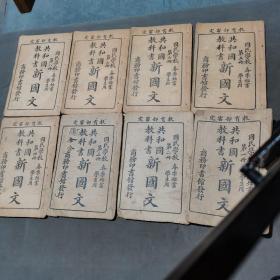 教育部審定
國民學校 春季始業
學生用
共和國
教科書
新國文
商務印書館發行
教育部審定
國民學校 春季始業
學生用
共和國
教科書
新國文
商務印書館發行
教育部審定
國民學校 春季始業
學生用
共和國
教科書
新國文
商務印書館發行
教育部審定
國民學校 春季始業
學生用
共和國
教科書
新國文
商務印書館發行
教育部審定
國民學校 春季始業
學生用
共和國
教科書
新國文
商務印書館發行
教育部審定
國民學校 春季始業
學生用
共和國
教科書
新國文
商務印書館發行
教育部審定
國民學校 春季始業
學生用
共和國
教科書
新國文
商務印書館發行
教育部審定
國民學校 春季始業
共和國
教科書
新國文
商務印書館發行